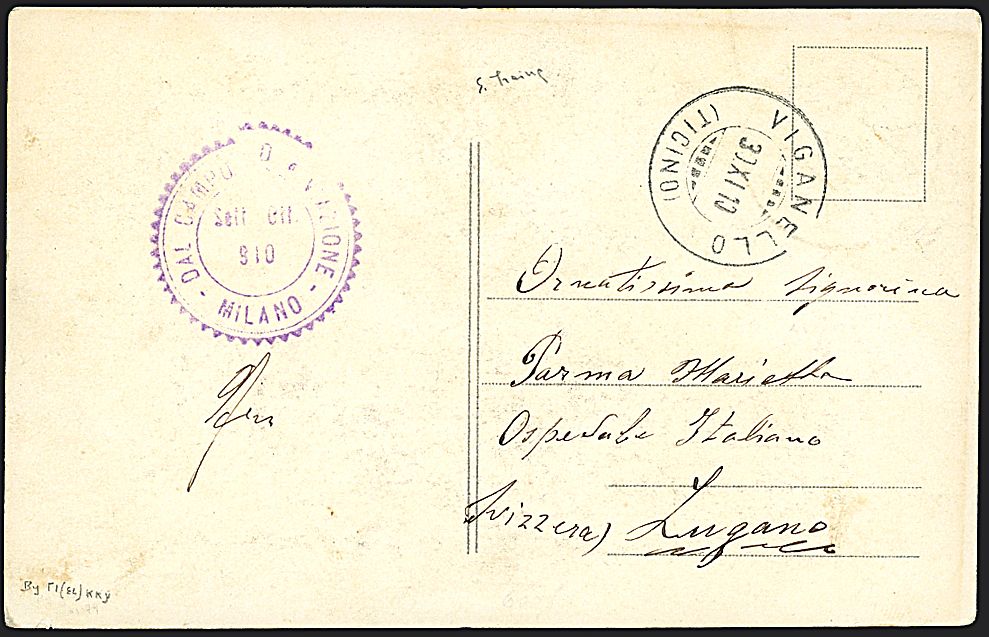 DAL CAMPO D'AVIAZIONE - MILANO -
Sett. Ott.
910
VIGANELLO (TICINO)
30 XI 10
Ornatissima Signorina
Parma Marietta
Ospedale Italiano
Svizzera) Lugano
By